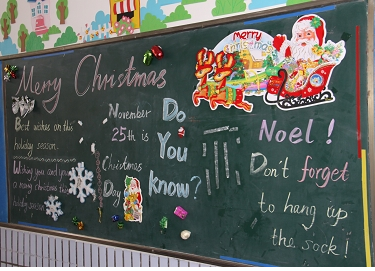 Merry Christmas
Best wishes on this
holiday season.
Wishing you and yours
a merry christmas this
holidy season
November
25th is
Christmas
Day
Do
You
know?
Merry
Christmas
Noel!
Don't forget
to hang up
the sock!